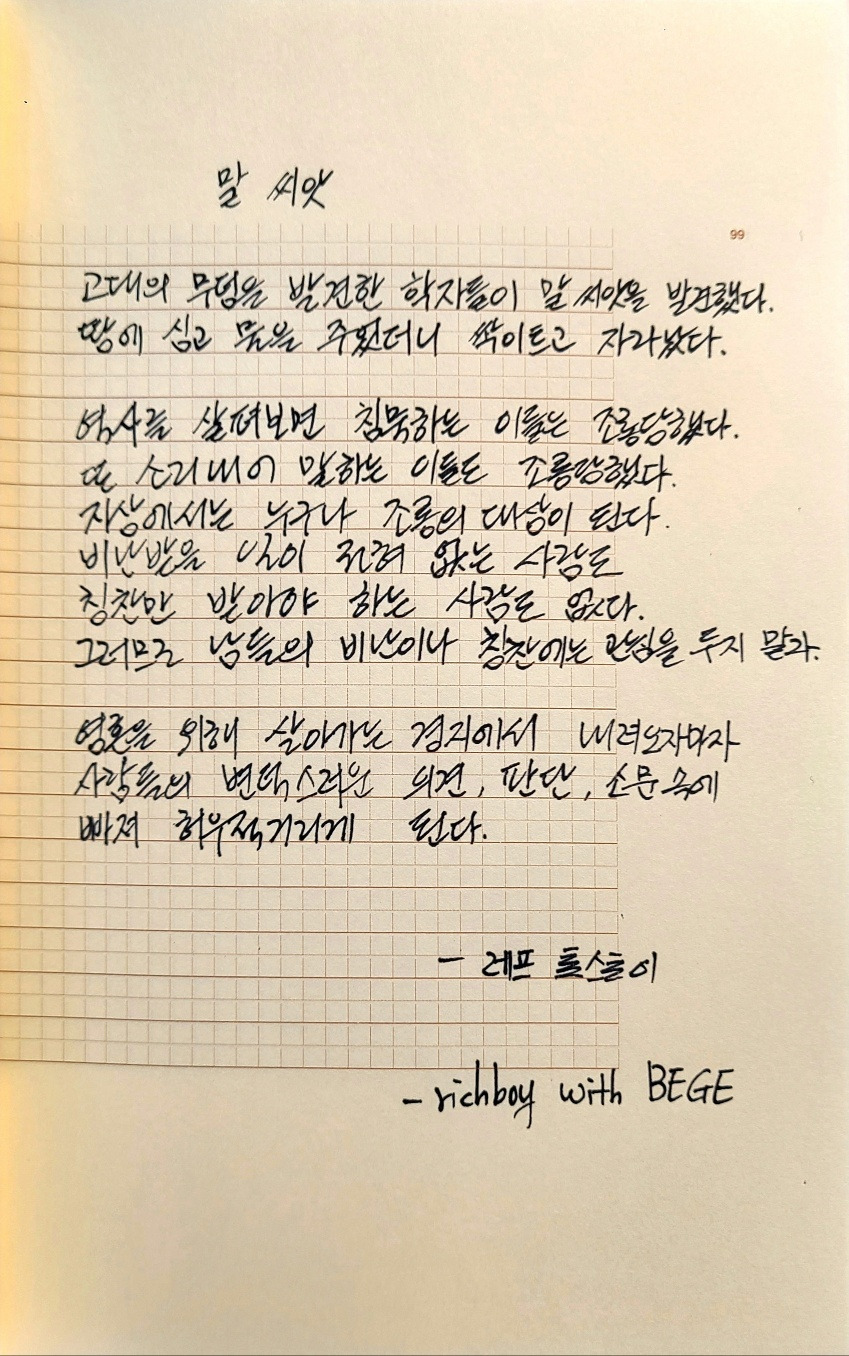 말 씨앗
99
고대의 무덤을 발견한 학자들이 말 씨앗을 발견했다.
땅에 심고 물을 주었더니 싹이트고 자라났다.
역사를 살펴보면 침묵하는 이들은 조롱당했다.
또 소리내어 말하는 이들도 조롱당했다.
지상에서는 누구나 조롱의 대상이 된다.
비난받을 일이 전혀 없는 사람도
칭찬만 받아야 하는 사람도 없다.
그러므로 남들의 비난이나 칭찬에는 관심을 두지 말라.
영혼을 위해 살아가는 경지에서 내려오자마자
사람들의 변덕스러운 의견, 판단, 소문 속에
빠져 허우적거리게 된다.
- 레프 톨스토이
- richboy with BEGE